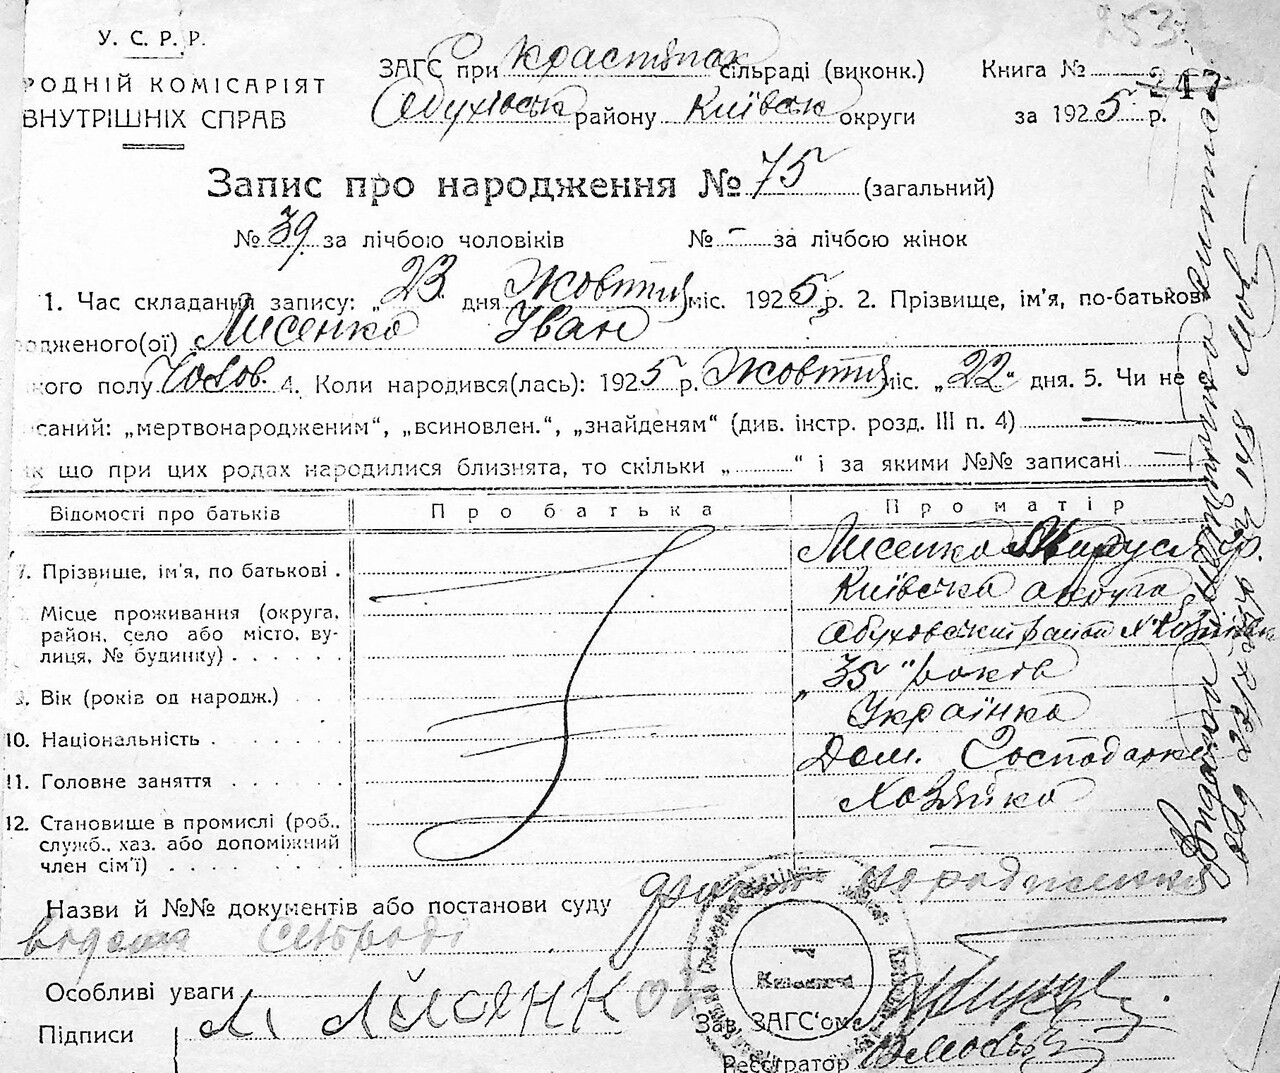 253
У. С. Р. Р.
РОДНІЙ КОМІСАРІЯТ
ВНУТРІШНІХ СПРАВ
ЗАГС при сільраді (виконк.)
Обухівськ району Київськ округи
Книга № 247
за 1925 р.
Запис про народження № 75 (загальний)
№ 39 за лічбою чоловіків № – за лічбою жінок
1. Час складання запису: „23 дня Жовтня міс. 1925 р. 2. Прізвище, ім'я, по-батькові
одженого(ої) Лисенко Іван
кого полу Чолов. 4. Коли народився(лась): 1925 р. Жовтня міс. „22" дня. 5. Чи не є
саний: „мертвонародженим", „всиновлен.", „знайденям" (див. інстр. розд. III п. 4)
к що при цих родах народилися близнята, то скільки „ " і за якими №№ записані
Відомості про батьків Про батька Про матір
7. Прізвише, ім'я, по батькові . Лисенко Маруся
Місце проживання (округа, район, село або місто, ву-
лиця, № будинку) . . . . . . Київська округа
Обуховський район
9. Вік (років од народж.) . . „35" років
10. Національність . . . . . . . Українка
11. Головне заняття . . . . . . Дом. Господарка
12. Становише в промислі (роб., Хозяйка
служб., хаз. або допоміжний
член сім'ї) . . . . . . . . .
Назви й №№ документів або постанови суду народження
відома сільраді
Особливі уваги
Підписи М Лисенко
Зав. ЗАГС'ом
Реєстратор